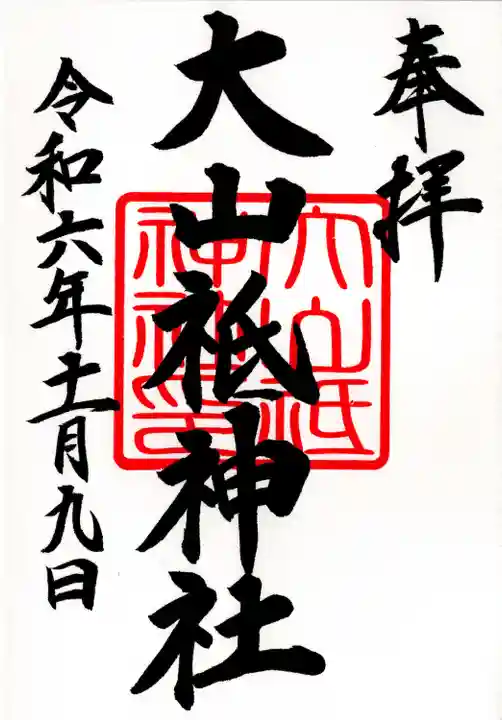 奉拝
大山祇神社
令和六年十一月九日
大山祇
神社印